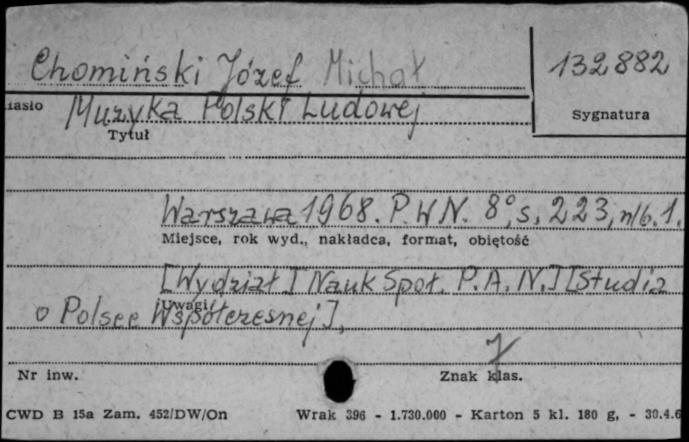 Chomiński Józef Michał
132882
iasło
Sygnatura
Muzyka Polski Ludowej
Tytuł
Warszawa 1968. P W N. 8°, s. 223, nlb. 1.
Miejsce, rok wyd., nakładca, format, objętość
[Wydział] Nauk Społ. P.A.N.] [Studia
Uwagi
o Polsce Współczesnej],
Nr inw.
Znak klas.
CWD B 15a Zam. 452/DW/On Wrak 396 - 1.730.000 - Karton 5 kl. 180 g, - 30.4.6